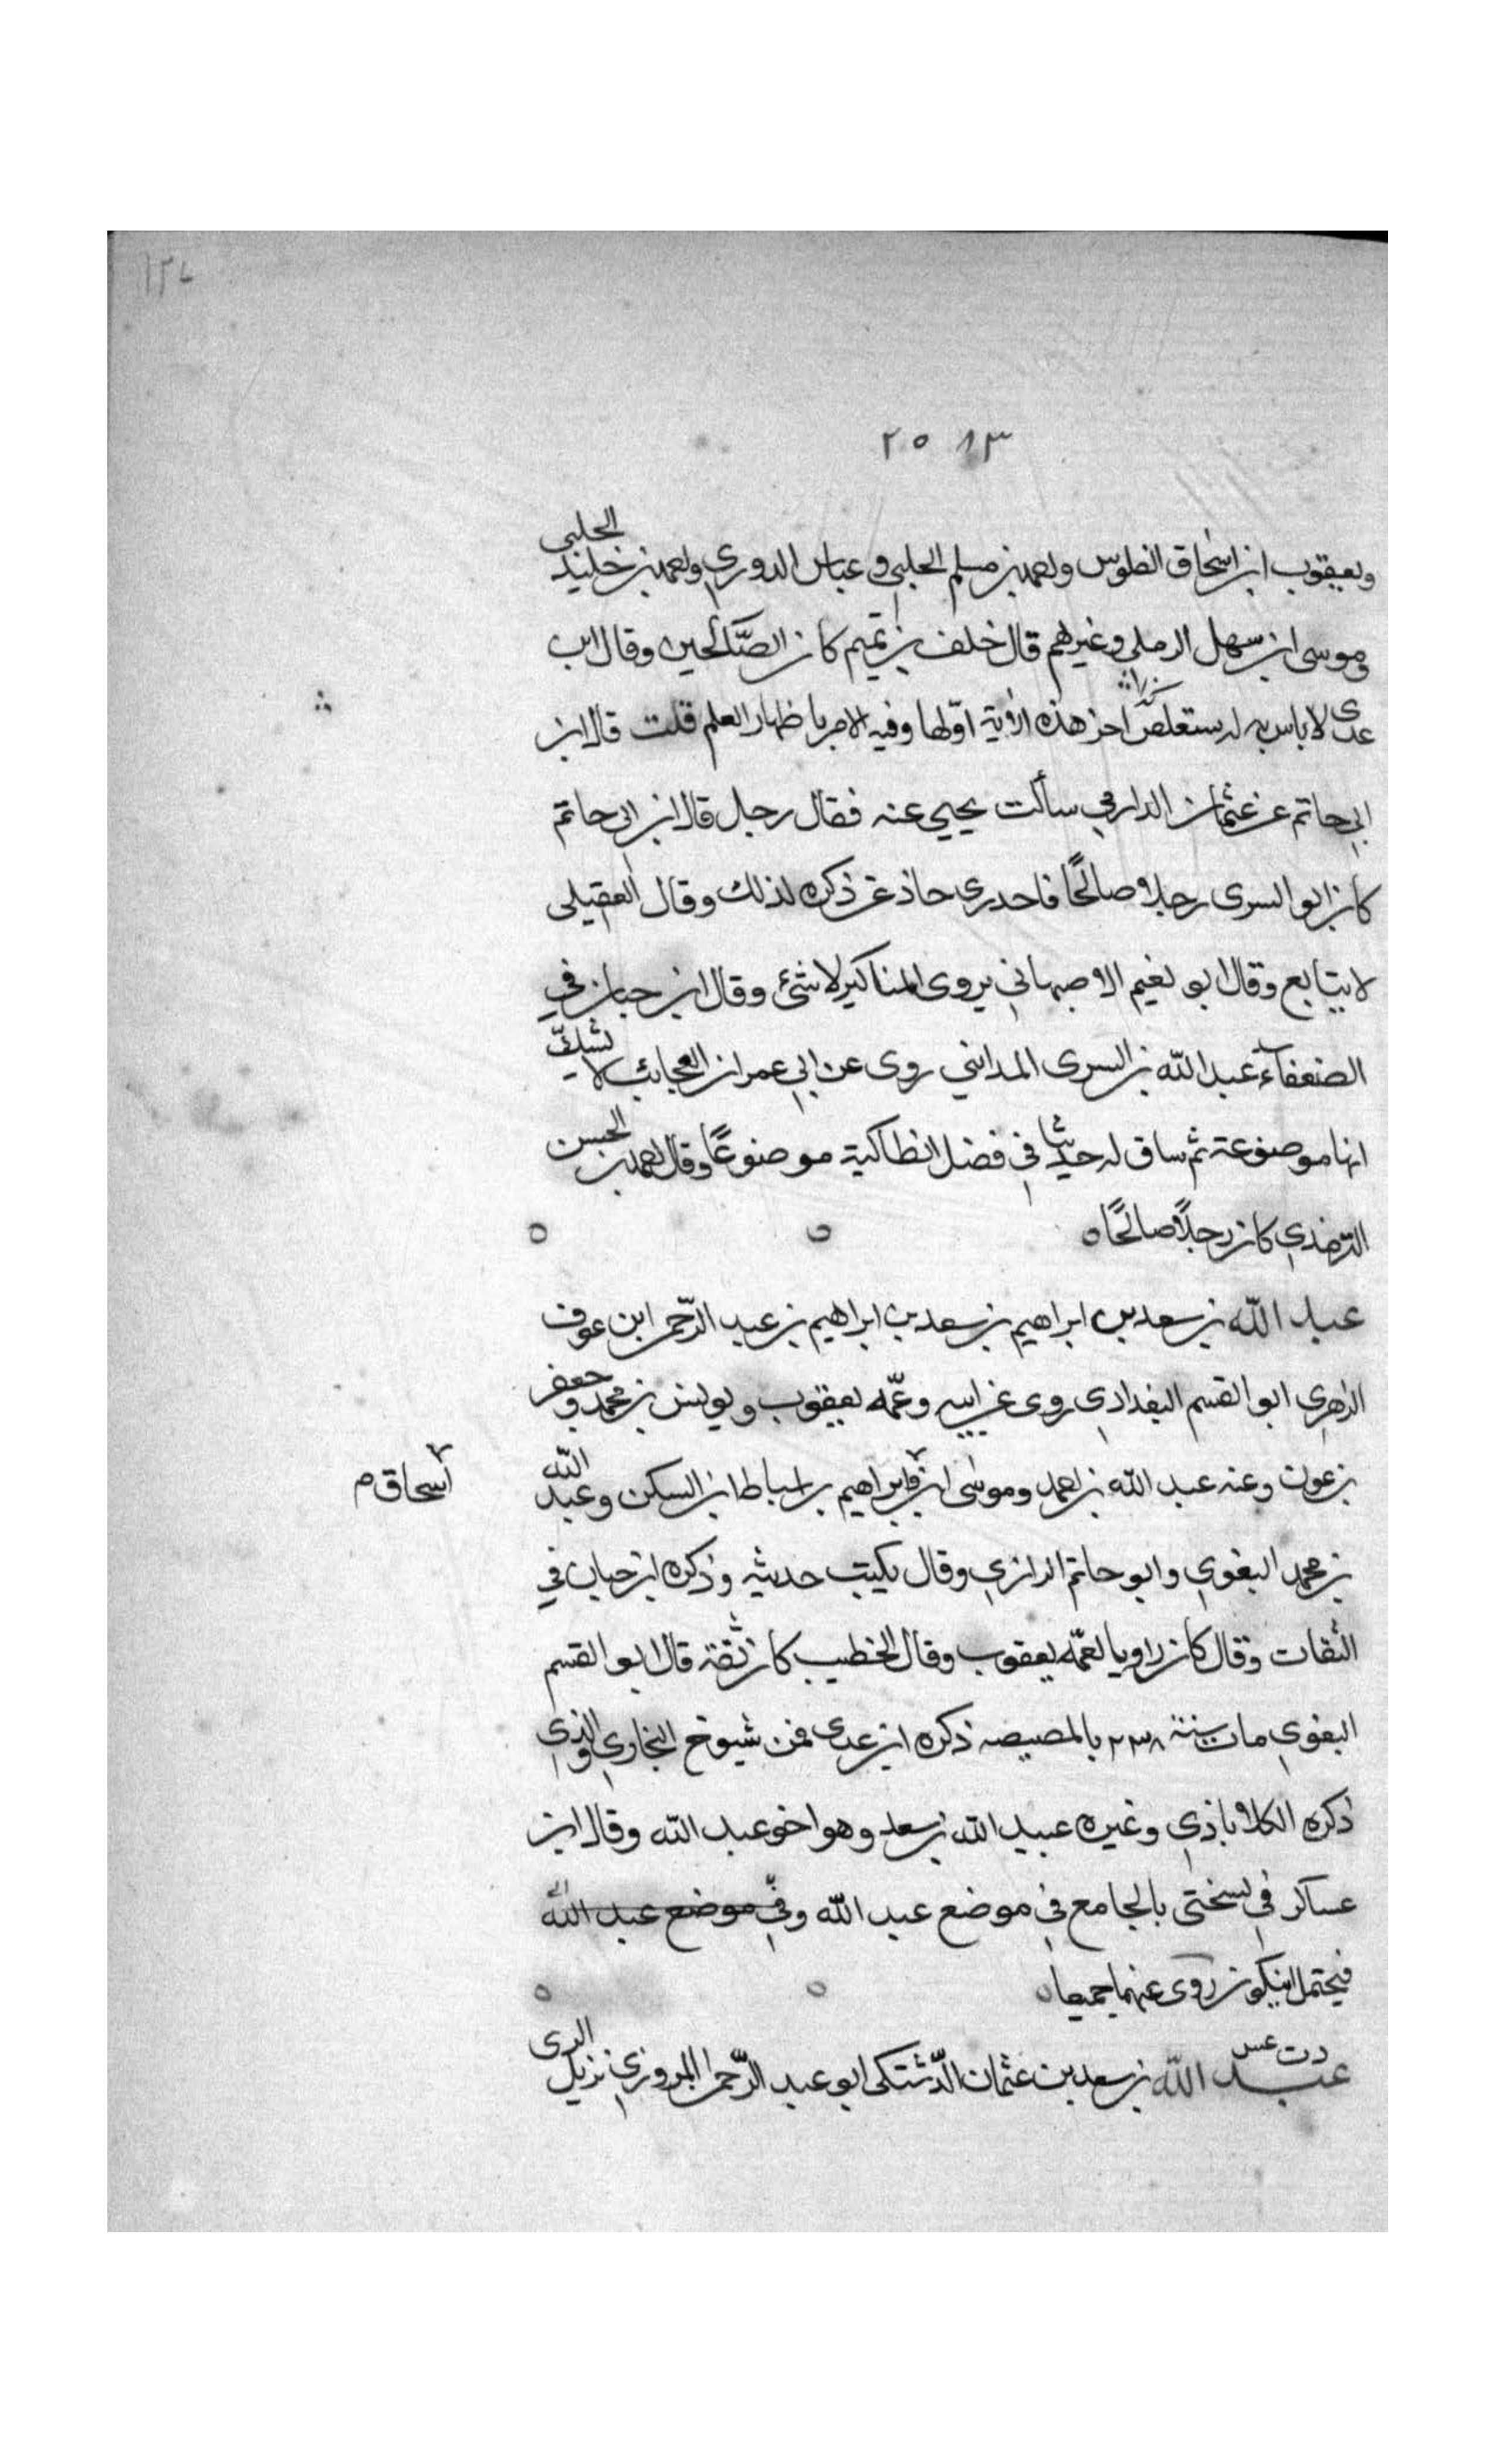 ١٣٧
٢٥ ٨٣
ويعقوب ابن اسحاق الطوسى واحمد بن مسلم الحلبى و عباس الدوري واحمد بن خليد الحلبى
وموسى ابن سهل الرملى وغيرهم قال خلف بن تميم كان من الصالحين وقال ابن
عدى لا باس به له آخر هذه الأية اوّلها وفيه الامر باظهار العلم قلت قال ابن
ابي حاتم عن عثمان الدارمي سألت يحيى عنه فقال رجل قال ابن ابى حاتم
كان ابو السرى رجلا صالحًا ذكره لذلك وقال العقيلى
لا يتابع وقال ابو نعيم الاصبهاني يروى المناكير لا شئ وقال ابن حبان في
الضعفاء عبد الله بن السرى المدايني روى عن ابي عمران العجايب لا نشك
انها موضوعة ثم ساق له حديثا في فضل انطاكية موضوعًا وقال احمد بن الحسن
الترمذي كان رجلًا صالحًا ٥
عبد الله بن سعد بن ابراهيم بن سعد بن ابراهيم بن عبد الرّحمن ابن عوف
الزهري ابو القسم البغدادي روى عن ابيه وعمّه يعقوب ويونس بن محمد وجعفر
بن عون وعنه عبد الله بن احمد وموسى ابن ابراهيم بن اسباط ابن السكن وعبد الله
اسحاق م
بن محمد البغوي وابو حاتم الرازي وقال يكتب حديثه وذكره ابن حبان في
الثقات وقال كان راويا لعمّه يعقوب وقال الخطيب كان ثقة قال ابو القسم
البغوي مات سنة ٢٣٨ بالمصيصه ذكره ابن عدى فمن شيوخ البخاري والذي
ذكره الكلاباذي وغيره عبيد الله بن سعد وهو اخو عبد الله وقال ابن
عساكر في نسختى بالجامع في موضع عبد الله وفي موضع عبد الله
فيحتمل ان يكون روى عنهما جميعا ٥
د ت عس
عبد الله بن سعد بن عثمان الدّشتكى ابو عبد الرّحمن المروزي نزيل الرى